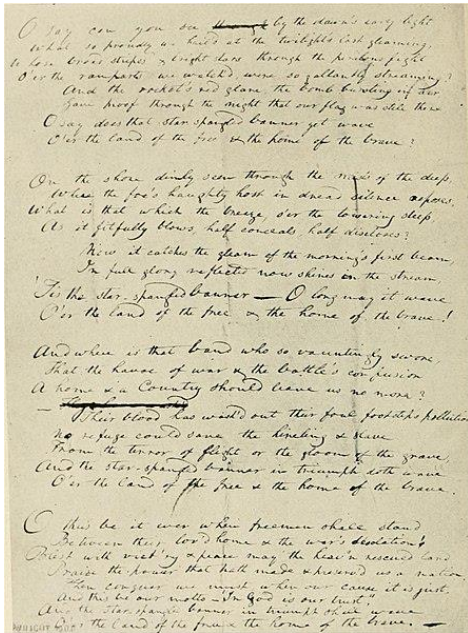 O say can you see by the dawn's early light
What so proudly we hail'd at the twilight's last gleaming,
Whose broad stripes & bright stars through the perilous fight
O'er the ramparts we watch'd, were so gallantly streaming?
And the rocket's red glare, the bomb bursting in air
Gave proof through the night that our flag was still there
O say does that star-spangled banner yet wave
O'er the land of the free & the home of the brave?
On the shore dimly seen through the mists of the deep,
Where the foe's haughty host in dread silence reposes,
What is that which the breeze, o'er the towering steep
As it fitfully blows, half conceals, half discloses?
Now it catches the gleam of the morning's first beam,
In full glory reflected now shines in the stream,
'Tis the star-spangled banner — O long may it wave
O'er the land of the free & the home of the brave!
And where is that band who so vauntingly swore,
That the havoc of war & the battle's confusion
A home & a Country should leave us no more?
—
Their blood has wash'd out their foul footsteps pollution
No refuge could save the hireling & slave
From the terror of flight or the gloom of the grave,
And the star-spangled banner in triumph doth wave
O'er the land of the free & the home of the brave.
O thus be it ever when freemen shall stand
Between their lov'd home & the war's desolation!
Blest with vict'ry & peace may the heav'n rescued land
Praise the power that hath made & preserv'd us a nation!
Then conquer we must, when our cause it is just,
And this be our motto — "In God is our trust,"
And the star-spangled banner in triumph shall wave
O'er the land of the free & the home of the brave. —